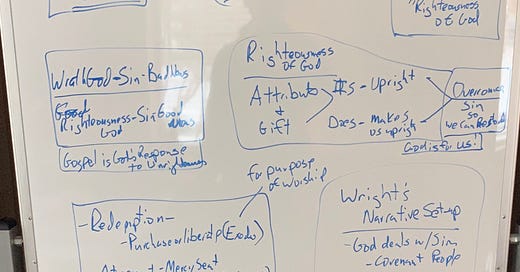 "Righteousness
of God
Wrath God - Sin - Bad News
Righteousness - Sin Good
God News
Gospel is God's Response
to Unrighteousness
Righteousness
of God
Attribute
+
Gift
Is - Upright
Does - Makes
us upright
Overcomes
Sin
so
we can
God is for us!
for purpose
of worship
- Redemption -
- Purchase or liberate (Exodus)
- Mercy Seat
Wright's
Narrative Set-up
- God deals w/ Sin
- Covenant People